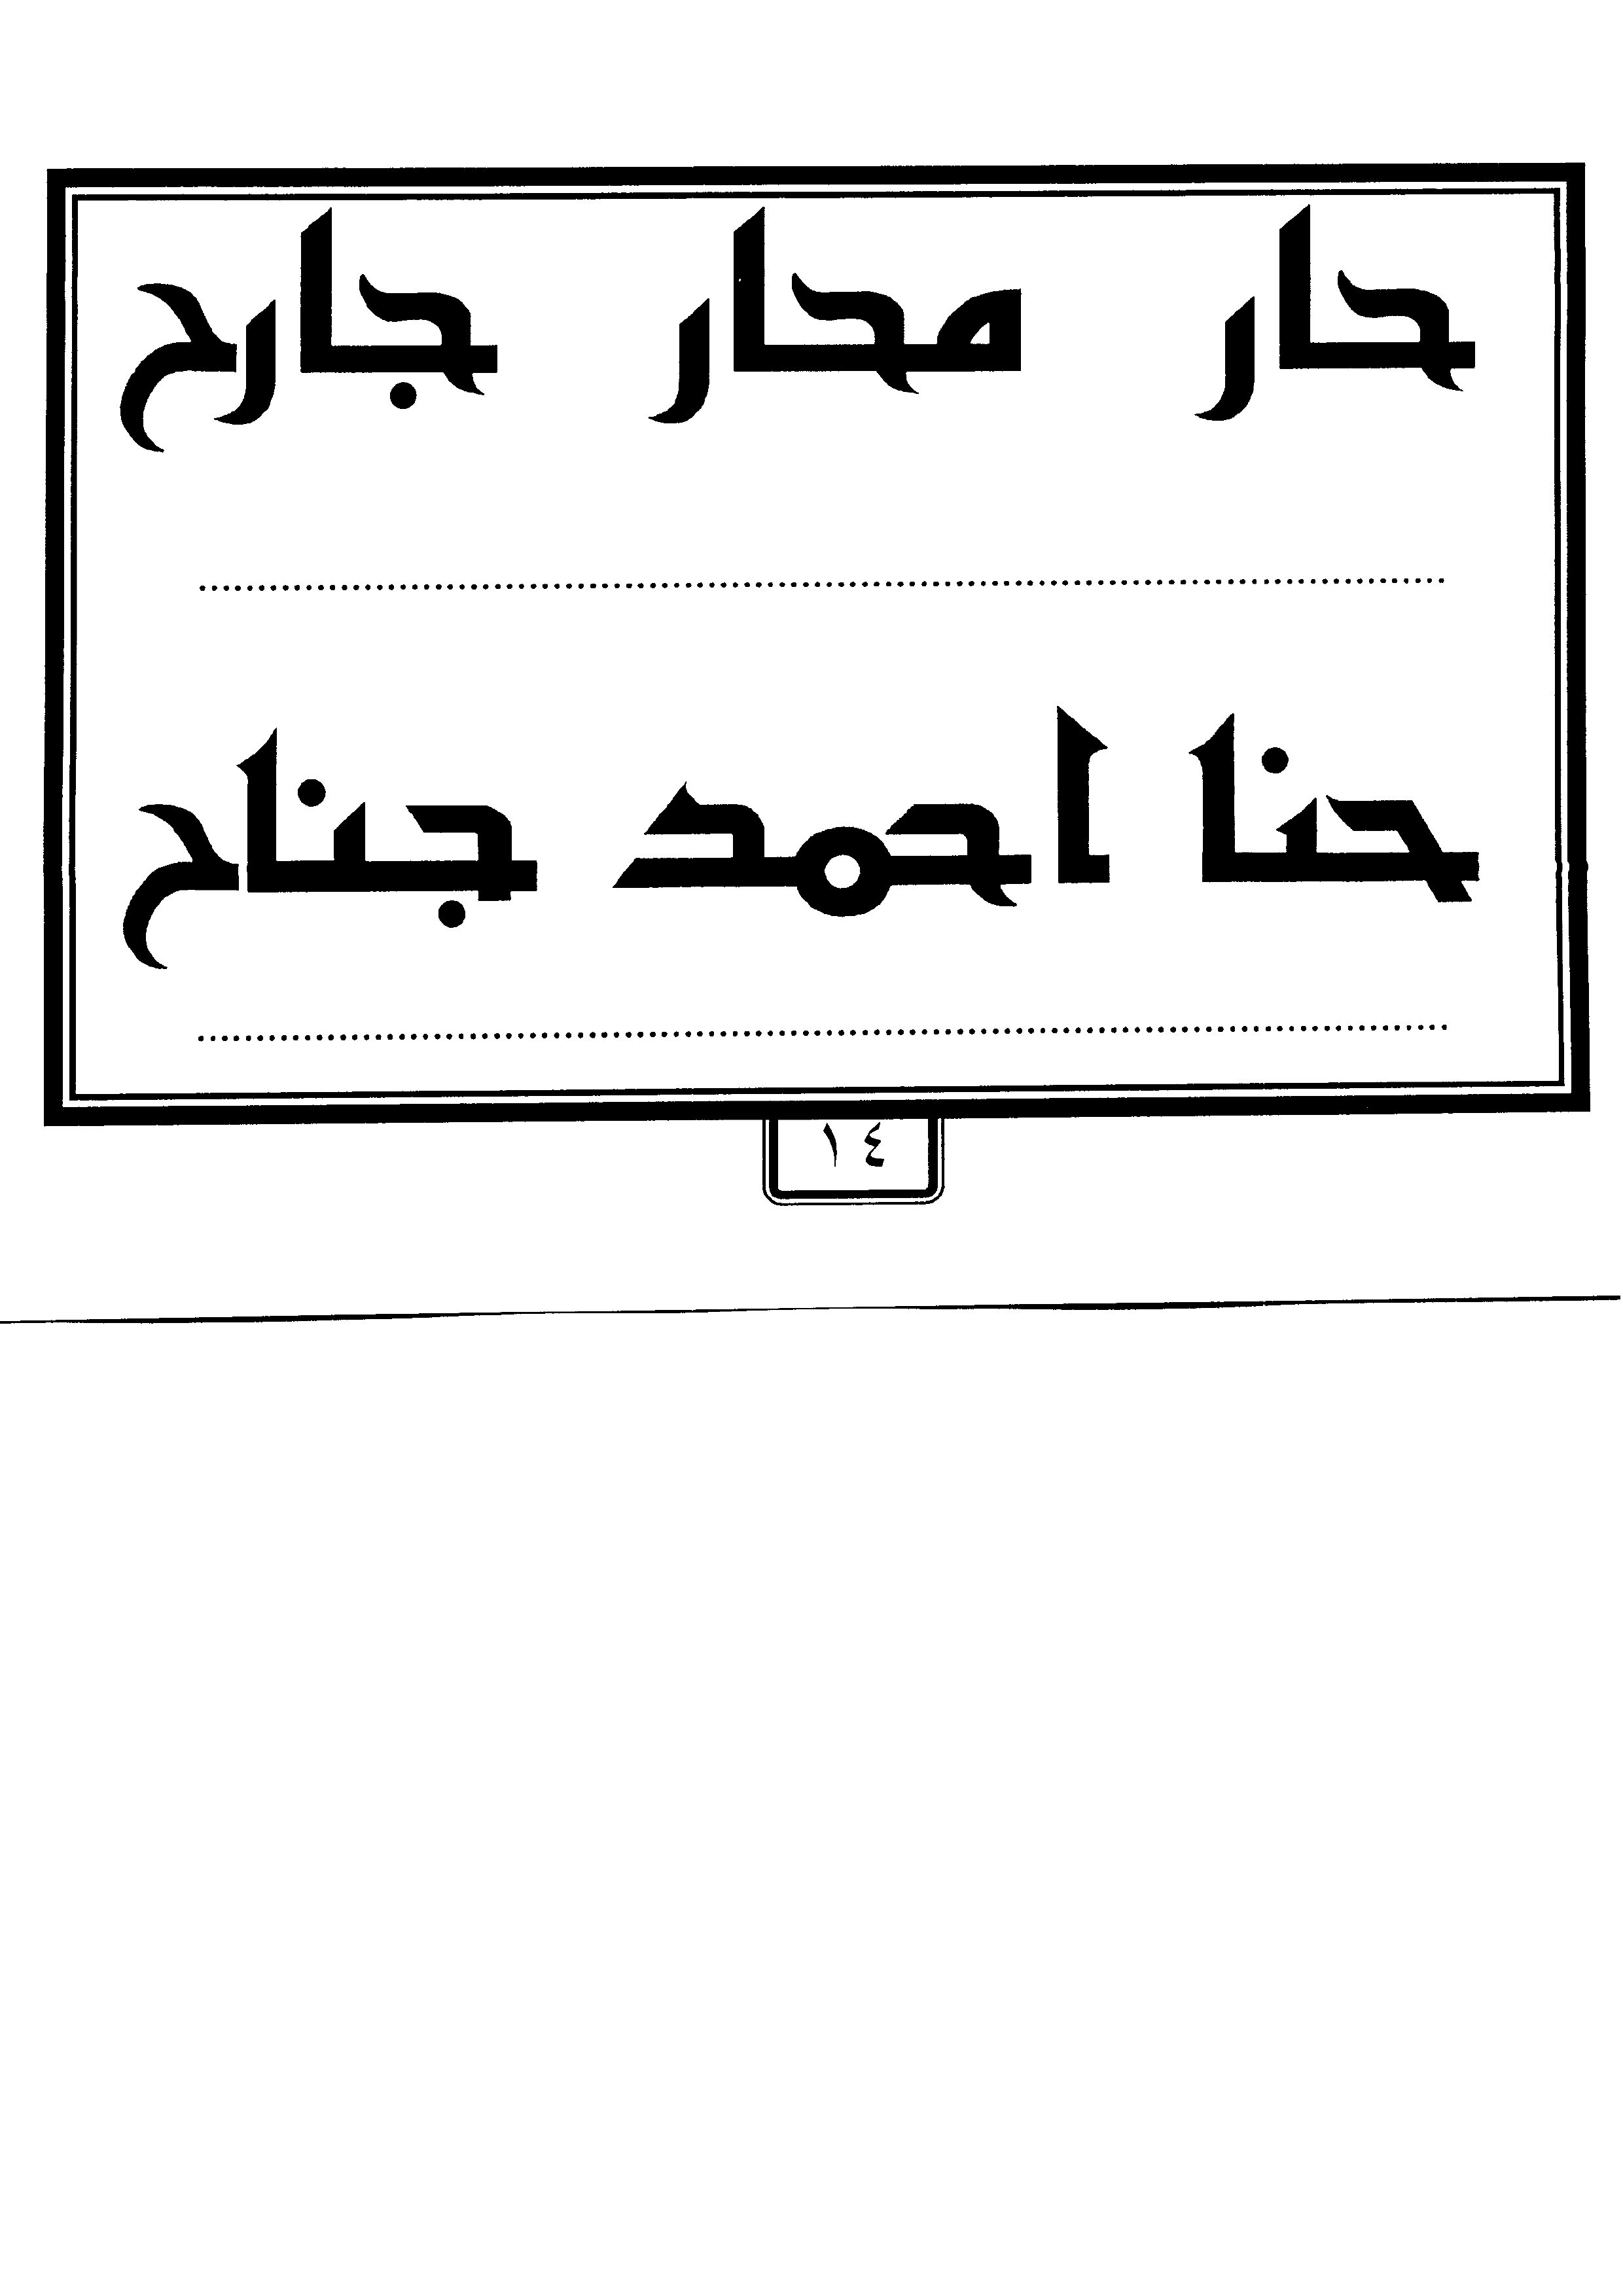 حار محار جارح
حنا احمد جناح
١٤